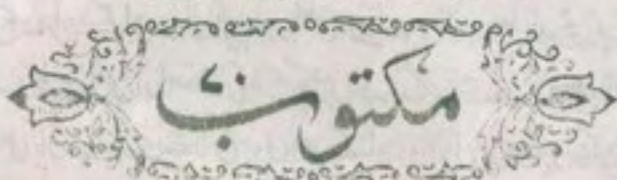 مکتوب